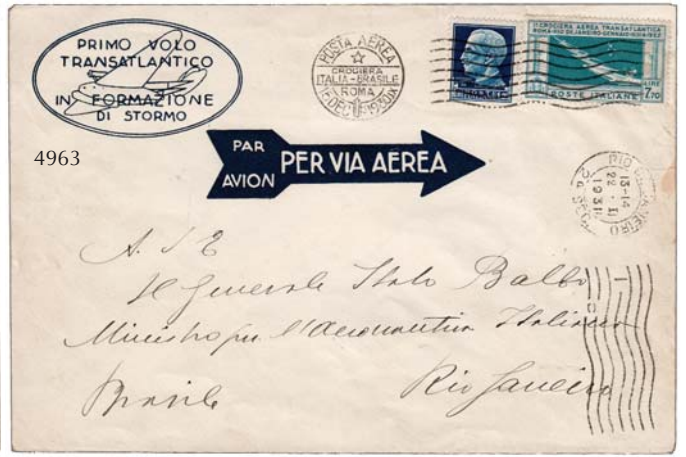 PRIMO VOLO
TRANSATLANTICO
IN FORMAZIONE
DI STORMO
POSTA AEREA
CROCIERA
ITALIA-BRASILE
ROMA
15 DEC 1930
II CROCIERA AEREA TRANSATLANTICA
LIRE
7,70
POSTE ITALIANE
4963
PAR
AVION
PER VIA AEREA
RIO DE JANEIRO
13-14
22
1931
A. S E
Il Generale Italo Balbo
Ministro per l'Aeronautica Italiana
Brasile Rio Janeiro